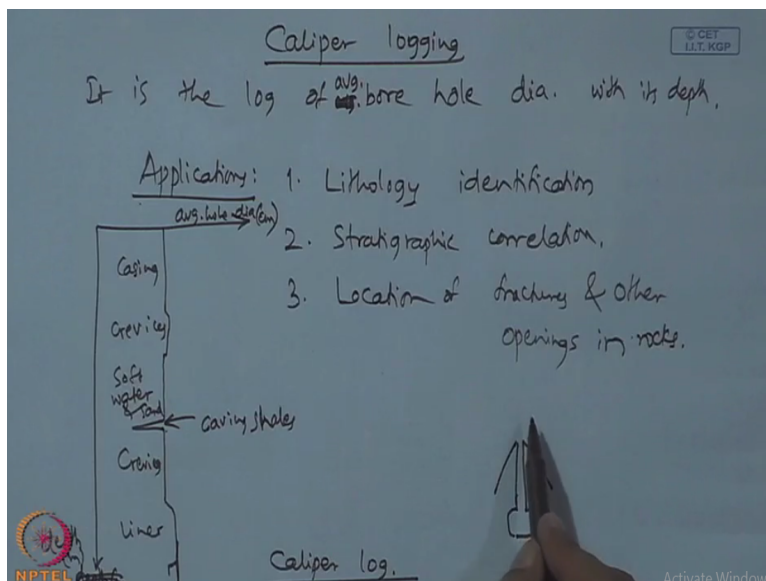 Caliper logging
© CET
I.I.T. KGP
It is the log of avg. bore hole dia. with its depth.
Applications: 1. Lithology identification
avg. hole dia (cm)
2. Stratigraphic correlation.
3. Location of fractures & other
openings in rocks.
Casing
Crevices
Soft
water
& sand
caving shales
Crevices
Liner
Caliper log.
NPTEL
Activate Window